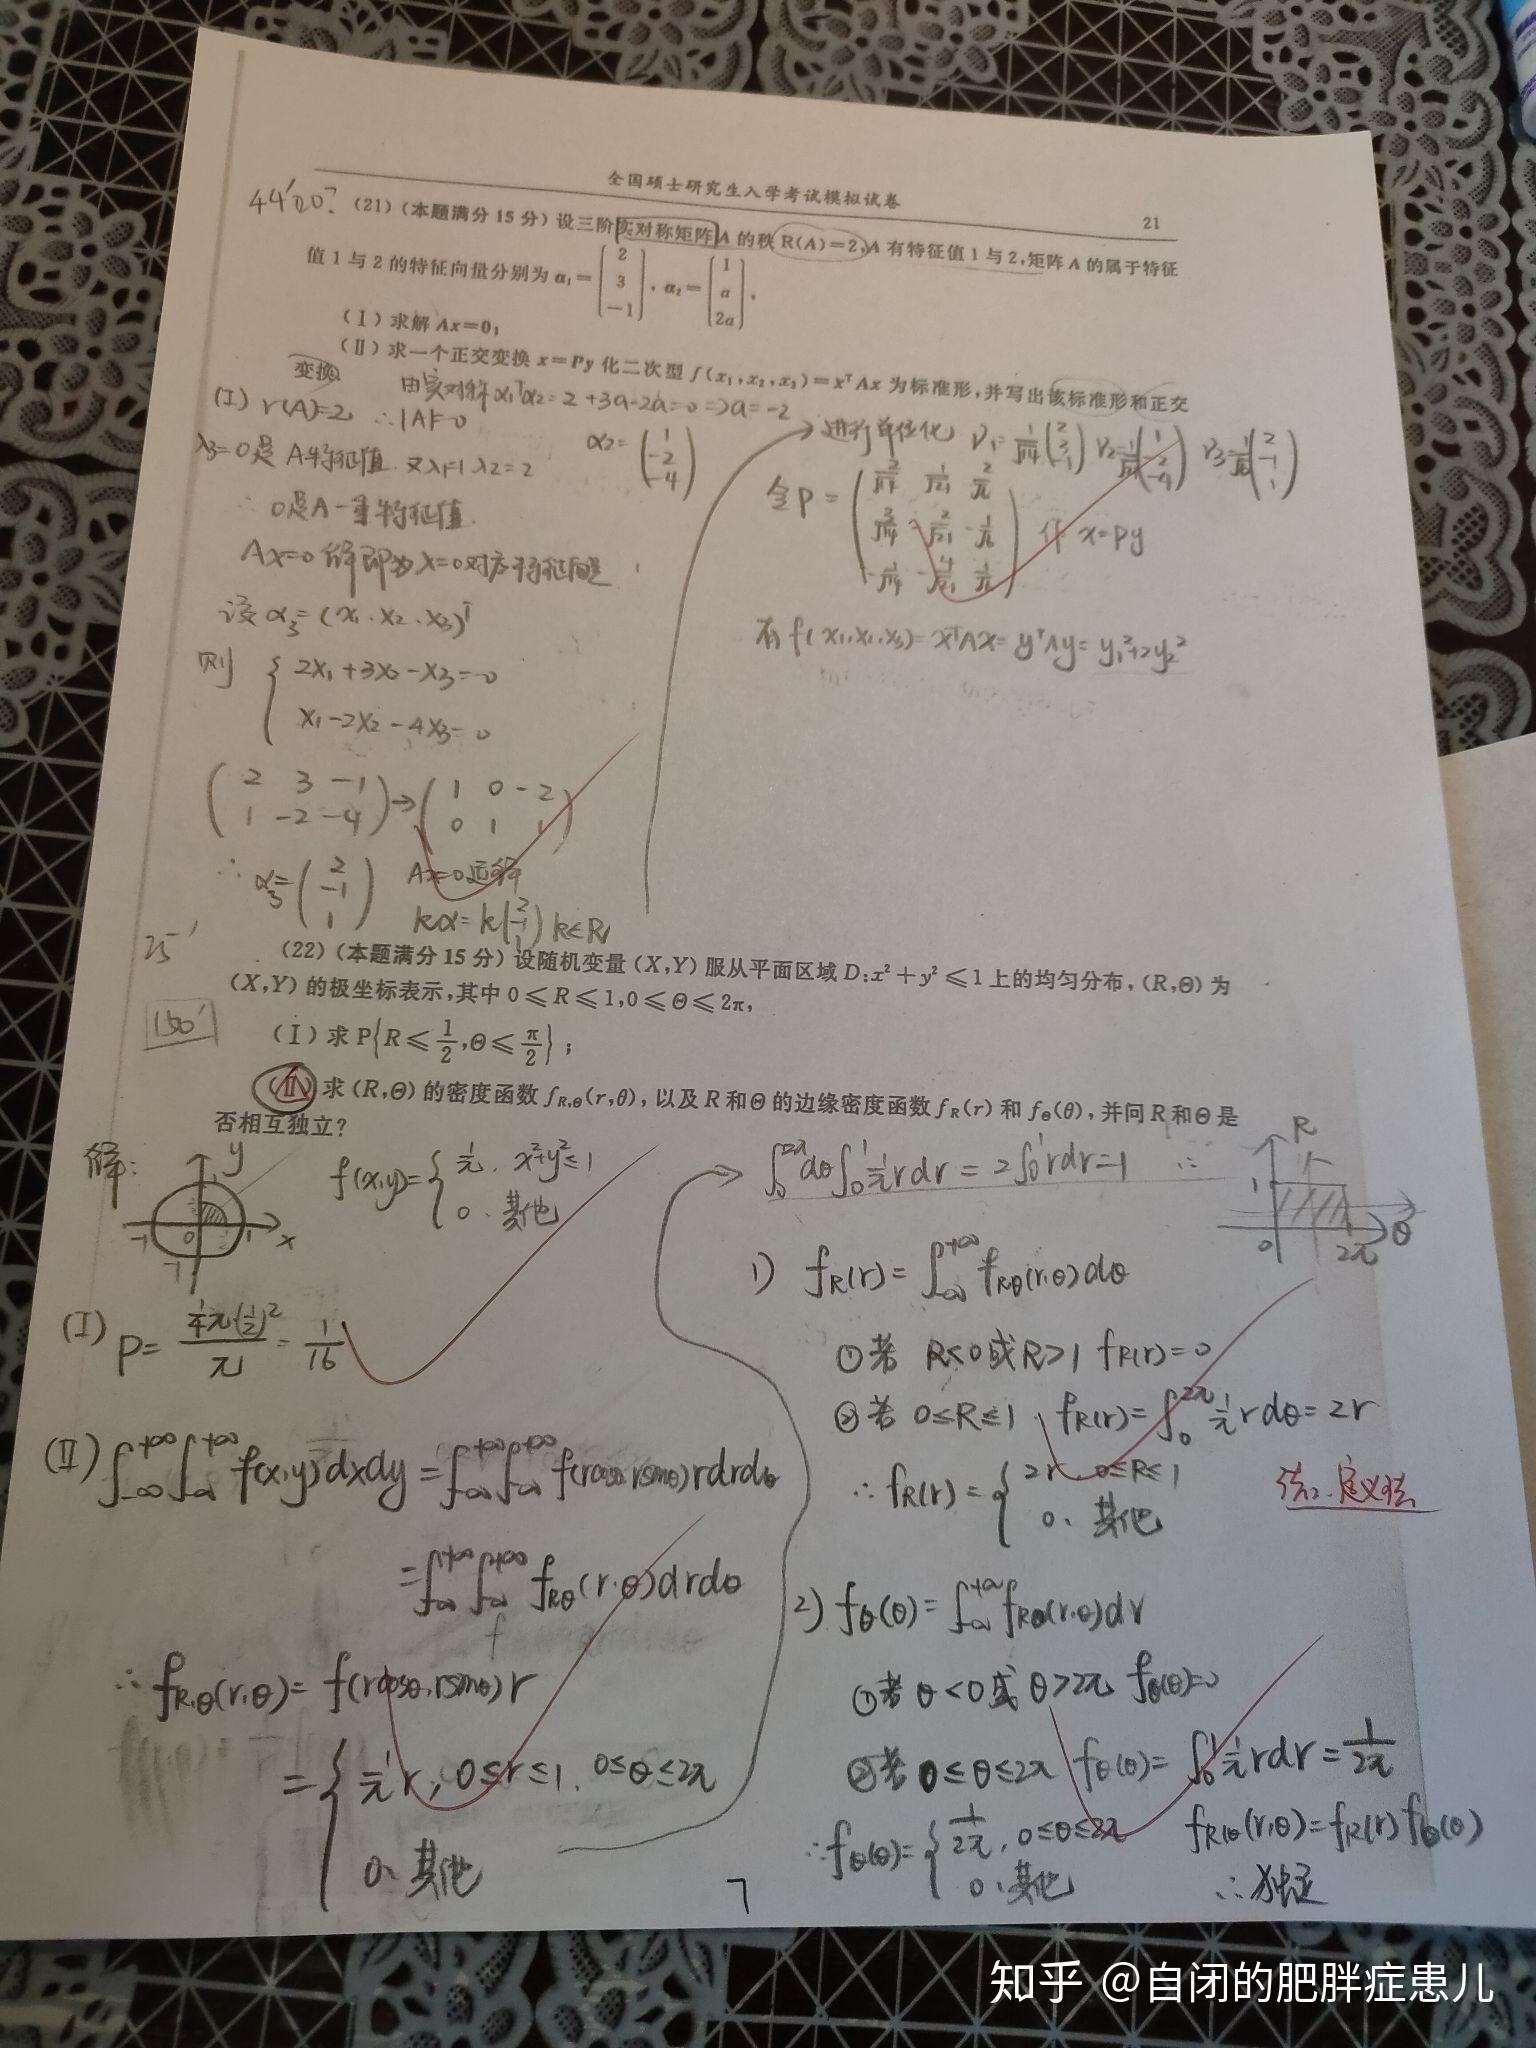 全国硕士研究生入学考试模拟试卷
21
44'
(21)(本题满分15分)设三阶实对称矩阵A的秩R(A)=2,A有特征值1与2,矩阵A的属于特征
值1与2的特征向量分别为α₁=(2 3 -1),α₂=(1 a 2a),
(Ⅰ)求解Ax=0;
(Ⅱ)求一个正交变换x=Py化二次型f(x₁,x₂,x₃)=xᵀAx为标准形,并写出该标准形和正交
变换.
由实对称 α₁ᵀα₂=2+3a-2a=0 ⇒a=-2
(I) r(A)=2 ∴|A|=0
α₂=(1 -2 -4)
λ₃=0是A特征值 又λ₁=1 λ₂=2
∴0是A一重特征值
Ax=0解即为λ=0对应特征向量
设α₃=(x₁,x₂,x₃)ᵀ
则 { 2x₁+3x₂-x₃=0
x₁-2x₂-4x₃=0
(2 3 -1
1 -2 -4) → (1 0 -2
0 1 1)
∴ α₃=(2 -1 1) Ax=0通解
kα=k(2 -1 1) k∈R
进行单位化 ν₁=1/√14(2 3 -1) ν₂=1/√21(1 -2 -4) ν₃=1/√6(2 -1 1)
令P=(2/√14 1/√21 2/√6
3/√14 -2/√21 -1/√6
-1/√14 -4/√21 1/√6) 作 x=Py
有f(x₁,x₂,x₃)=xᵀAx=yᵀΛy=y₁²+2y₂²
25'
(22)(本题满分15分)设随机变量(X,Y)服从平面区域D:x²+y²≤1上的均匀分布,(R,Θ)为
(X,Y)的极坐标表示,其中0≤R≤1,0≤Θ≤2π,
150'
(Ⅰ)求P{R≤1/2,Θ≤π/2};
(Ⅱ)求(R,Θ)的密度函数f_{R,Θ}(r,θ),以及R和Θ的边缘密度函数f_R(r)和f_Θ(θ),并问R和Θ是
否相互独立?
解:
y
-1 0 1 x
-1
f(x,y)={ 1/π, x²+y²≤1
0, 其他
(I) P= (1/4π(1/2)²)/π = 1/16
(II) ∫_{-∞}^{+∞}∫_{-∞}^{+∞} f(x,y)dxdy=∫_{-∞}^{+∞}∫_{-∞}^{+∞} f(rcosθ,rsinθ)rdrdθ
=∫_{-∞}^{+∞}∫_{-∞}^{+∞} f_{RΘ}(r,θ)drdθ
∴ f_{R,Θ}(r,θ)= f(rcosθ,rsinθ)r
={ 1/π r, 0≤r≤1, 0≤θ≤2π
0, 其他
∫₀^{2π}dθ∫₀¹ 1/π rdr=2∫₀¹rdr=1 ∴
R
1
0 2π θ
1) f_R(r)=∫_{-∞}^{+∞} f_{RΘ}(r,θ)dθ
①若 R<0或R>1 f_R(r)=0
②若 0≤R≤1, f_R(r)=∫₀^{2π} 1/π rdθ=2r
∴ f_R(r)={ 2r 0≤R≤1
0, 其他
法2.定义法
2) f_Θ(θ)=∫_{-∞}^{+∞} f_{RΘ}(r,θ)dr
①若 θ<0或θ>2π f_Θ(θ)=0
②若 0≤θ≤2π f_Θ(θ)=∫₀¹ 1/π rdr=1/2π
∴f_Θ(θ)={ 1/2π, 0≤θ≤2π
0, 其他
f_{RΘ}(r,θ)=f_R(r)f_Θ(θ)
∴独立
7
知乎 @自闭的肥胖症患儿